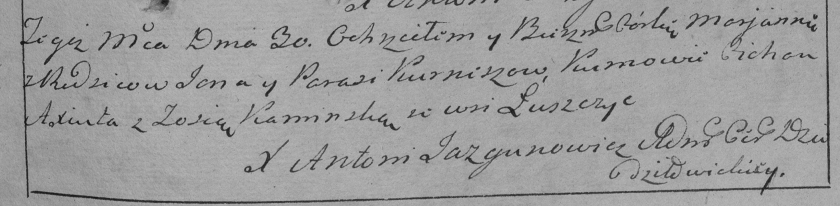 Tegoż Mca Dnia 30. Ochrzciłem y Bierzm Córkę Marjannę
z Rodzicow Jana y Parasi Kurniszow, Kumowie Cichon
Axiuta z Zosią Kaminską ze wsi Łuszczyc
X Antoni Jazgunowicz Adm